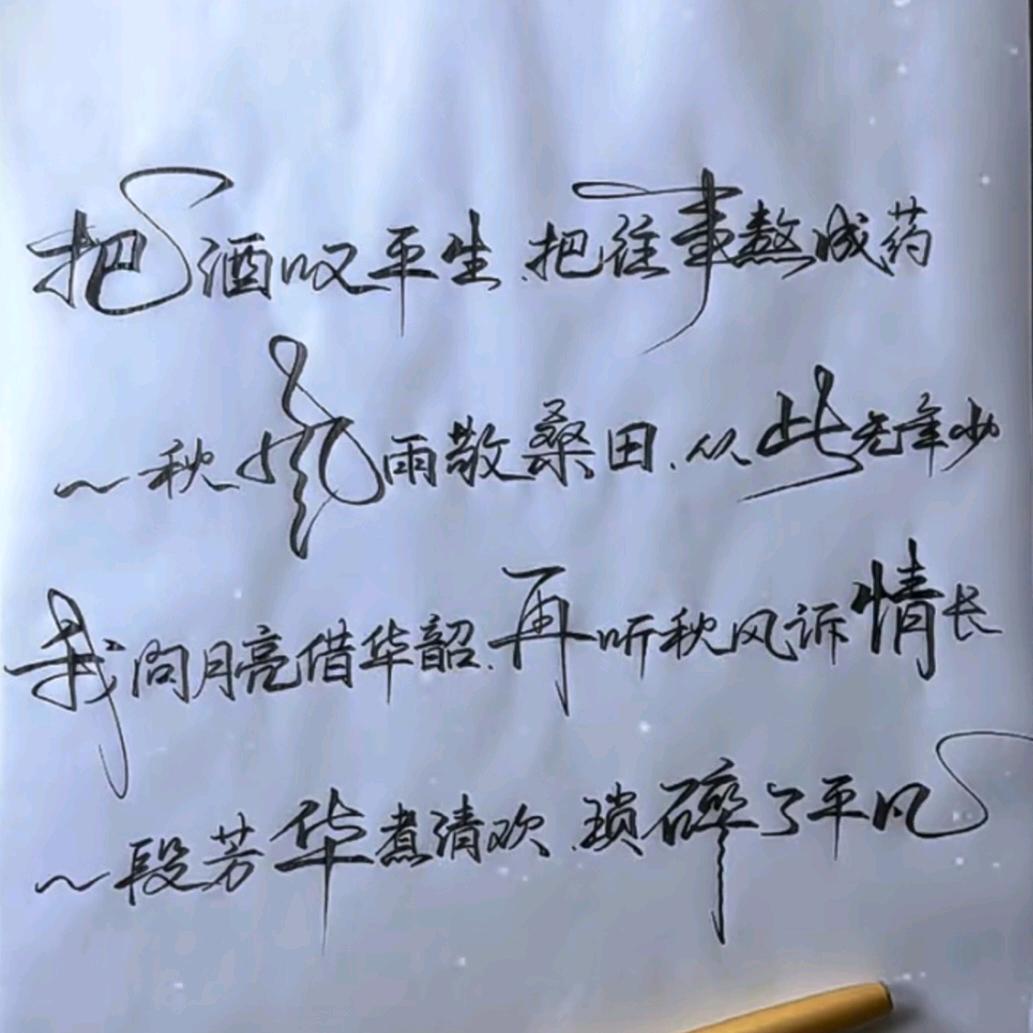 把酒叹平生,把往事熬成药
一秋风雨敬桑田,从此无年少
我问月亮借华韶,再听秋风诉情长
一段芳华煮清欢,琐碎了平凡